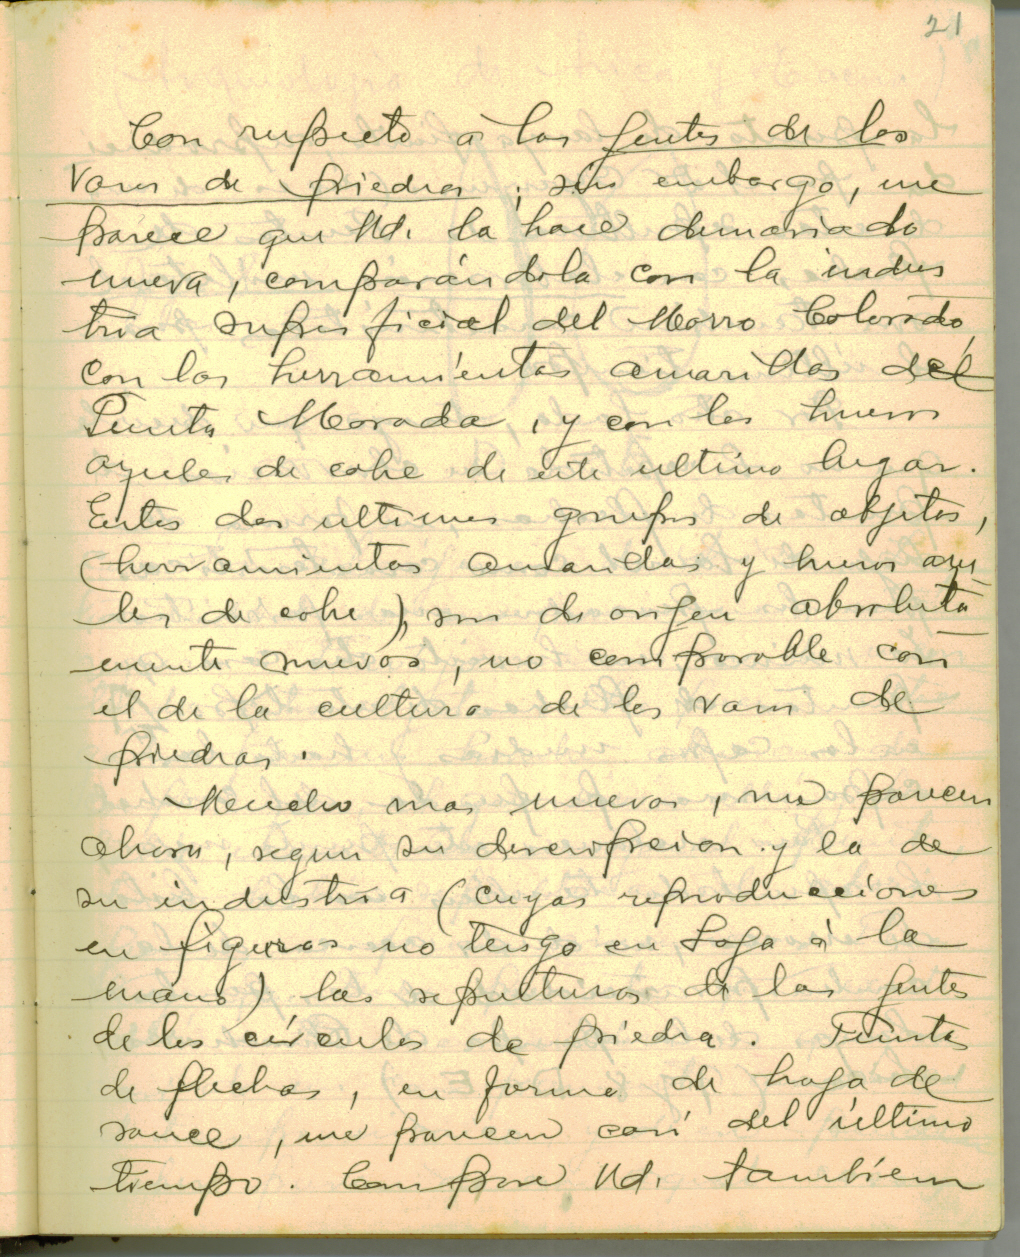 21
Con respecto à las gentes de los
vasos de piedras ; sin embargo, me
parece que Ud. la hace demasiado
nueva, comparándola con la indus
tria superficial del Morro Colorado,
con las herramientas amarillas del
Punta Morada, y con los huesos
azules de cobre de este ultimo lugar.
Estos dos ultimos grupos de objetos,
(herramientas amarillas y huesos azu
les de cobre), son de origen absoluta
mente nuevos, no comparable con
el de la cultura de los vasos de
piedras.
Mucho mas nuevos, me parecen
ahora, segun su descripcion y la de
su industria (cuyas reproducciones
en figuras no tengo en Loja à la
mano) las sepulturas de las gentes
de los círculos de piedra. Puntas
de flechas, en forma de hoja de
sauce, me parecen casi del último
tiempo. Compare Ud. tambíen